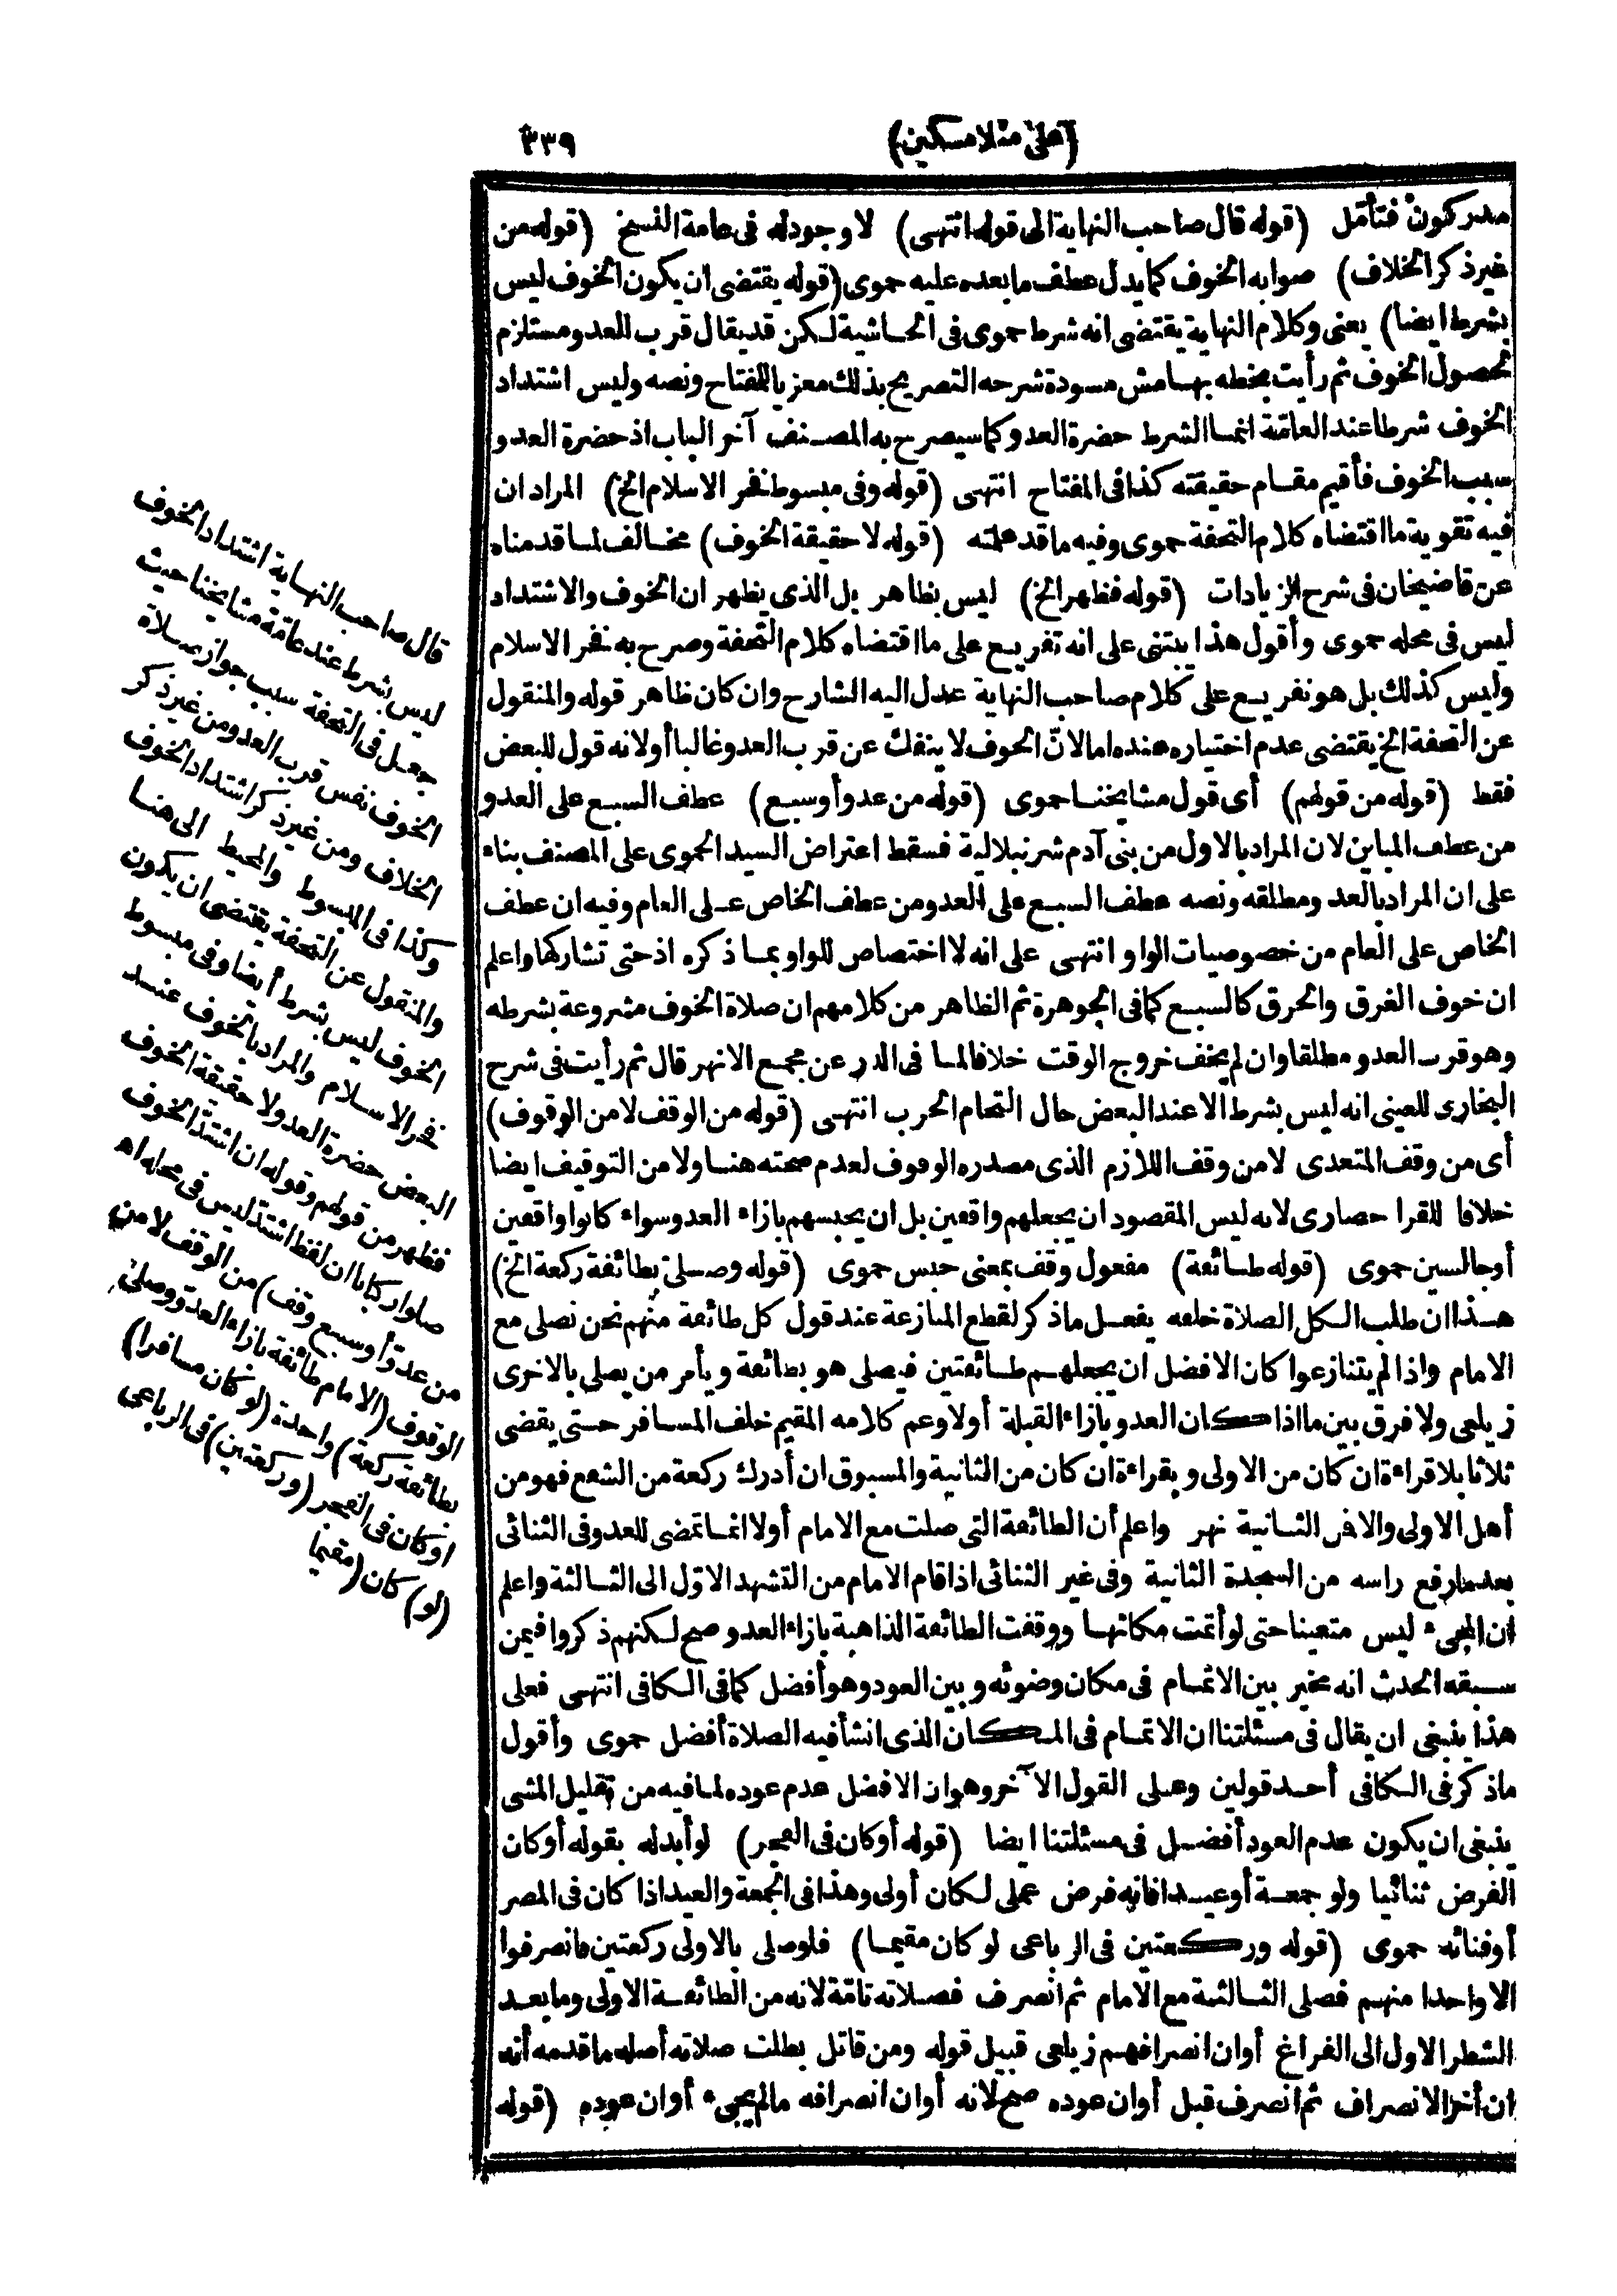 (على منلامسكين) ٣٣٩
مدركون فتأمل (قوله قال صاحب النهاية الى قوله انتهى) لا وجود له فى عامة النسخ (قوله من
غير ذكر الخلاف) صوابه الخوف كما يدل عطف ما بعده عليه حموى (قوله يقتضى ان يكون الخوف ليس
بشرط ايضا) يعنى وكلام النهاية يقتضى انه شرط حموى فى الحاشية لكن قد يقال قرب العدو مستلزم
لحصول الخوف ثم رأيت بخطه بهامش مسودة شرحه التصريح بذلك معزيا للمفتاح ونصه وليس اشتداد
الخوف شرطا عند العامّة انما الشرط حضرة العدو كما سيصرح به المصنف آخر الباب اذ حضرة العدو
سبب الخوف فأقيم مقام حقيقته كذا فى المفتاح انتهى (قوله وفى مبسوط فخر الاسلام الخ) المراد ان
فيه تقوية ما اقتضاه كلام التحفة حموى وفيه ما قد علمته (قوله لا حقيقة الخوف) مخالف لما قدمناه
عن قاضيخان فى شرح الزيادات (قوله فظهر الخ) ليس بظاهر بل الذى يظهر ان الخوف والاشتداد
ليس فى محله حموى وأقول هذا يبتنى على انه تفريع على ما اقتضاه كلام التحفة وصرح به فخر الاسلام
وليس كذلك بل هو تفريع على كلام صاحب النهاية عدل اليه الشارح وان كان ظاهر قوله والمنقول
عن التحفة الخ يقتضى عدم اختياره عنده اما لانّ الخوف لا ينفك عن قرب العدو غالبا أولانه قول للبعض
فقط (قوله من قولهم) أى قول مشايخنا حموى (قوله من عدو أوسبع) عطف السبع على العدو
من عطف المباين لان المراد بالاول من بنى آدم شرنبلالية فسقط اعتراض السيد الحموى على المصنف بناء
على ان المراد بالعدو مطلقه ونصه عطف السبع على العدو من عطف الخاص على العام وفيه ان عطف
الخاص على العام من خصوصيات الواو انتهى على انه لا اختصاص للواو بما ذكره اذ حتى تشاركها واعلم
ان خوف الغرق والحرق كالسبع كما فى الجوهرة ثم الظاهر من كلامهم ان صلاة الخوف مشروعة بشرطه
وهو قرب العدو مطلقا وان لم يخف خروج الوقت خلافا لما فى الدر عن مجمع الانهر قال ثم رأيت فى شرح
البخارى للعينى انه ليس بشرط الا عند البعض حال التحام الحرب انتهى (قوله من الوقف لا من الوقوف)
أى من وقف المتعدى لا من وقف اللازم الذى مصدره الوقوف لعدم صحته هنا ولا من التوقيف ايضا
خلافا للقرا حصارى لانه ليس المقصود ان يجعلهم واقفين بل ان يحبسهم بازاء العدو سواء كانوا واقفين
أوجالسين حموى (قوله طائفة) مفعول وقف بمعنى حبس حموى (قوله وصلىّ بطائفة ركعة الخ)
هذا ان طلب الكل الصلاة خلفه يفعل ماذكر لقطع المنازعة عند قول كل طائفة منهم نحن نصلى مع
الامام واذا لم يتنازعوا كان الافضل ان يجعلهم طائفتين فيصلى هو بطائفة ويأمر من يصلى بالاخرى
زيلعى ولا فرق بين ما اذا كان العدو بازاء القبلة أولا وعم كلامه المقيم خلف المسافر حتى يقضى
ثلاثا بلا قراءة ان كان من الاولى وبقراءة ان كان من الثانية والمسبوق ان أدرك ركعة من الشفع فهو من
أهل الاولى والا فن الثانية نهر واعلم أن الطائفة التى صلت مع الامام أولا انما تمضى للعدو فى الثنائى
بعد ما رفع راسه من السجدة الثانية وفى غير الثنائى اذا قام الامام من التشهد الاوّل الى الثالثة واعلم
ان المجىء ليس متعينا حتى لو أتمت مكانها ووقفت الطائفة الذاهبة بازاء العدو صح لكنهم ذكروا فيمن
سبقه الحدث انه مخير بين الاتمام فى مكان وضوئه وبين العود وهو أفضل كما فى الكافى انتهى فعلى
هذا ينبغى ان يقال فى مسئلتنا ان الاتمام فى المكان الذى انشأ فيه الصلاة أفضل حموى وأقول
ماذكر فى الكافى أحد قولين وعلى القول الآخر وهو ان الافضل عدم عوده لما فيه من تقليل المشى
ينبغى ان يكون عدم العود أفضل فى مسئلتنا ايضا (قوله أوكان فى الفجر) لو أبدله بقوله أوكان
الفرض ثنائيا ولو جمعة أوعيدا فانه فرض عملى لكان أولى وهذا فى الجمعة والعيد اذا كان فى المصر
أوفنائه حموى (قوله وركعتين فى الرباعى لو كان مقيما) فلو صلى بالاولى ركعتين فانصرفوا
الا واحدا منهم فصلى الثالثة مع الامام ثم انصرف فصلاته تامّة لانه من الطائفة الاولى وما بعد
الشطر الاول الى الفراغ أوان انصرافهم زيلعى قبيل قوله ومن قاتل بطلت صلاته أصله ما قدمه أنه
ان أخر الانصراف ثم انصرف قبل أوان عوده صح لانه أوان انصرافه ما لم يجىء أوان عوده (قوله
قال صاحب النهاية اشتداد الخوف
ليس بشرط عند عامّة مشايخنا حيث
جعل فى التحفة سبب جواز صلاة
الخوف نفس قرب العدو من غير ذكر
الخلاف ومن غير ذكر اشتداد الخوف
وكذا فى المبسوط والمحيط الى هنا
والمنقول عن التحفة يقتضى ان يكون
الخوف ليس بشرط أيضا وفى مبسوط
فخر الاسلام والمراد بالخوف عند
البعض حضرة العدو لا حقيقة الخوف
فظهر من قولهم وقوله ان اشتدّ الخوف
صلوا ركبانا ان لفظ اشتدّ ليس فى محله اهـ
من عدوّ أوسبع وقف) من الوقف لا من
الوقوف (الامام طائفة بازاء العدوّ وصلىّ
بطائفة ركعة) واحدة (لو كان مسافرا)
اوكان فى الفجر (وركعتين) فى الرباعى
(لو) كان (مقيما